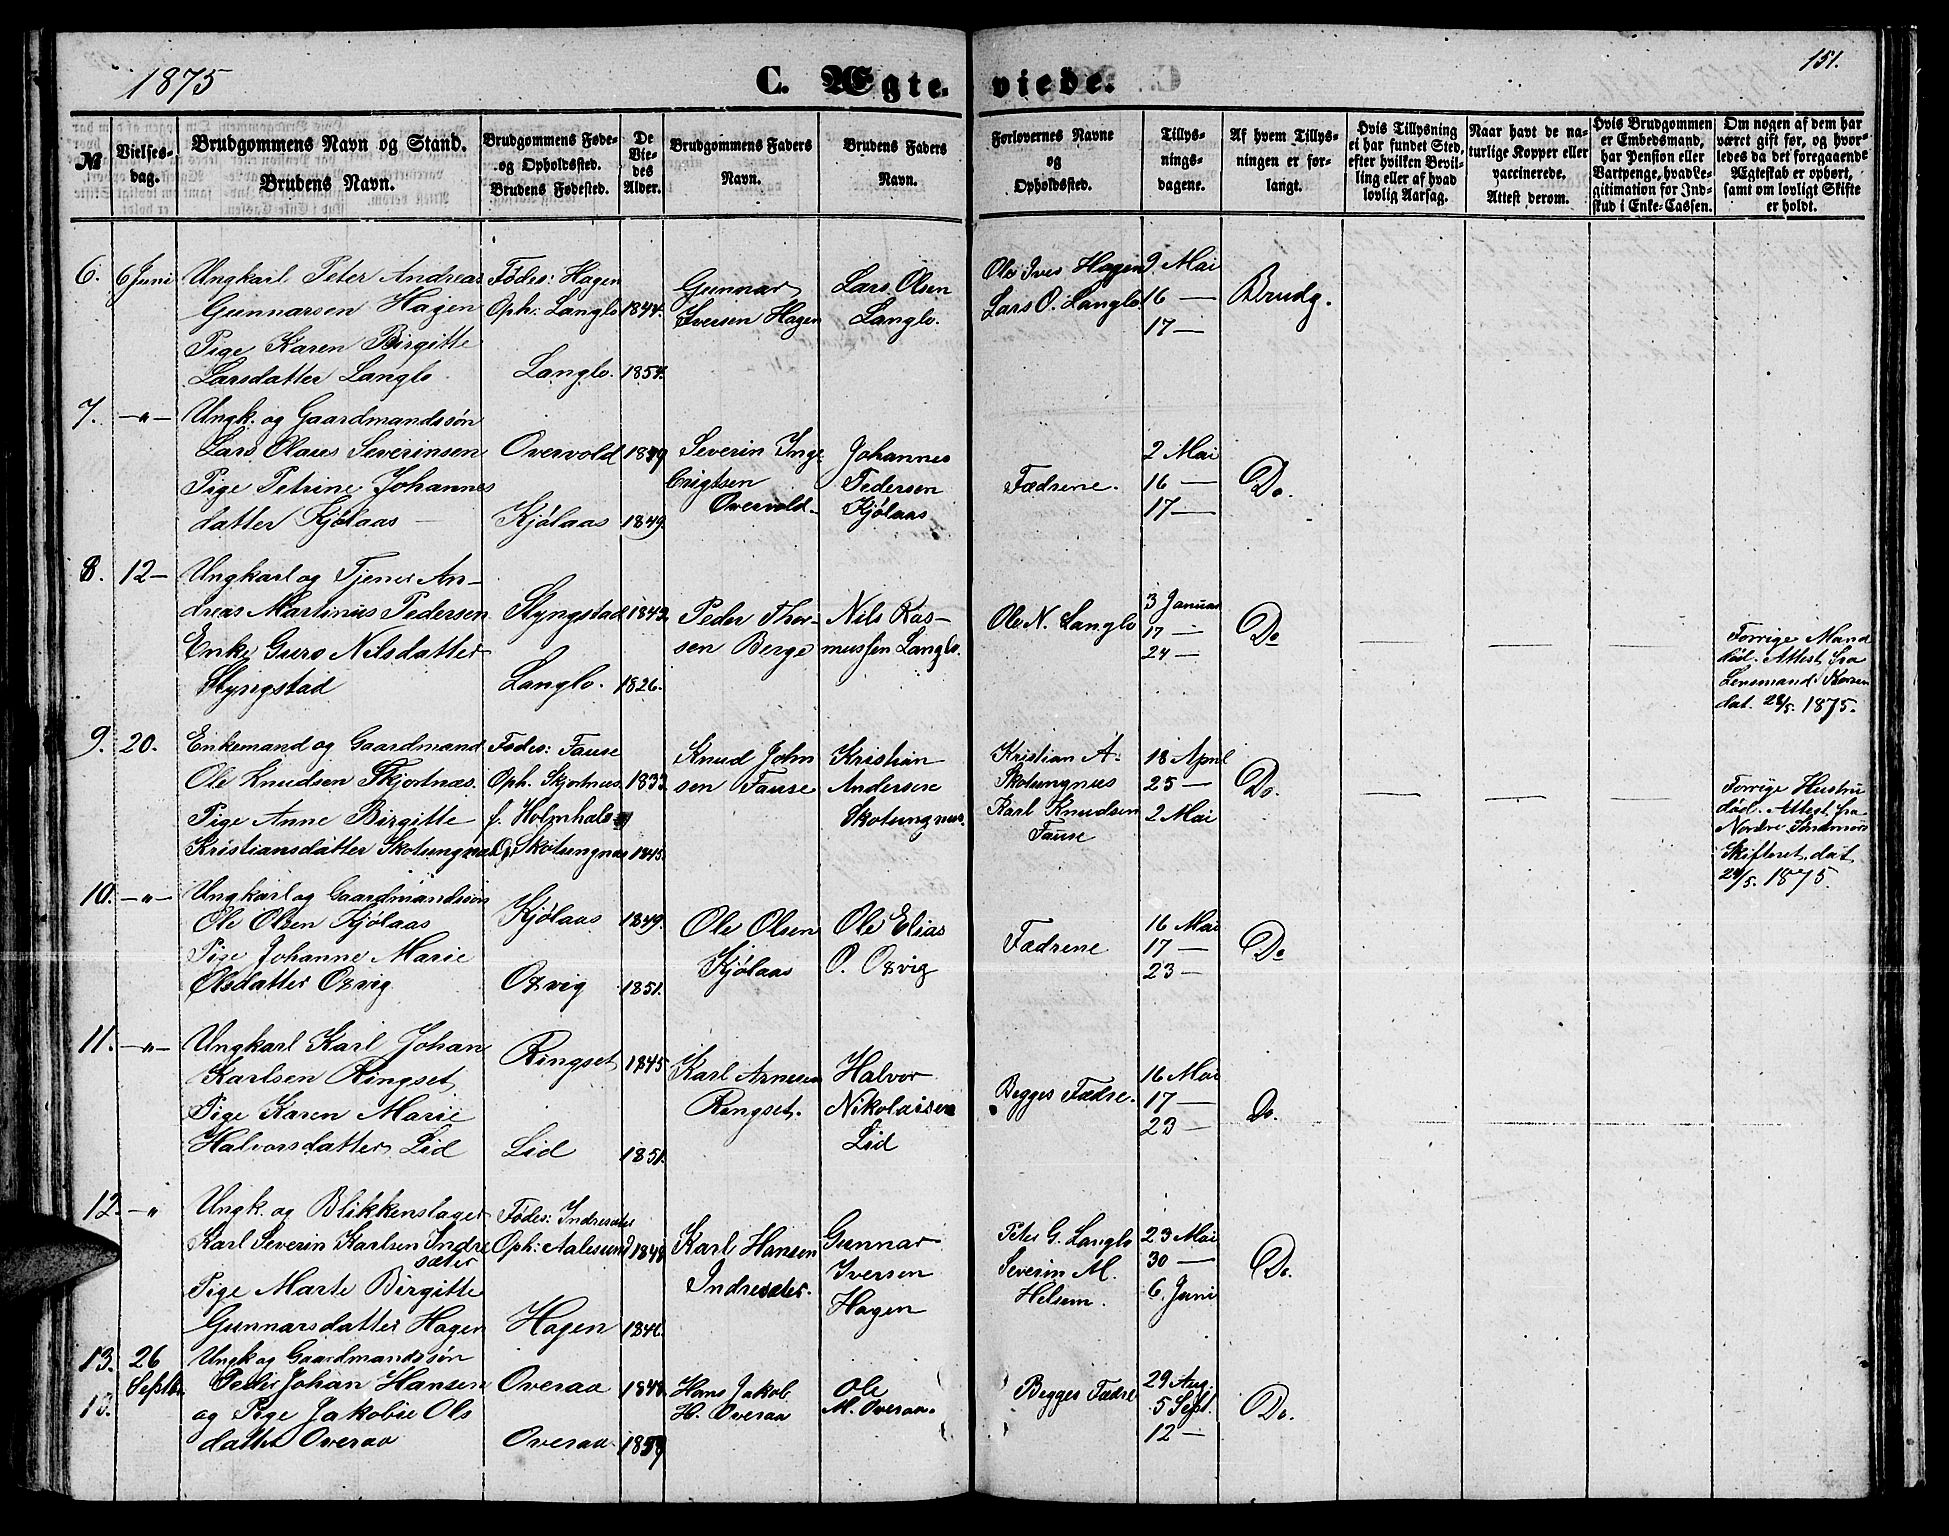 1875
C. Ægteviede.
151.
№
Vielses-
dag.
Brudgommens Navn og Stand.
Brudens Navn.
Brudgommens Føde-
og Opholdssted.
Brudens Fødested.
De
Vie-
des
Alder.
Brudgommens Faders
Navn.
Brudens Faders
Navn.
Forlovernes Navne
og
Opholdssted.
Tillys-
nings-
dagene.
Af hvem Tillys-
ningen er for-
langt.
Hvis Tillysning
ei har fundet Sted,
efter hvilken Bevil-
ling eller af hvad
lovlig Aarsag.
Naar havt de na-
turlige Kopper eller
vaccinerede.
Attest derom.
Hvis Brudgommen
er Embedsmand,
har Pension eller
Vartpenge, hvad Le-
gitimation for Ind-
skud i Enke-Cassen.
Om nogen af dem har
været gift før, og hvor-
ledes da det foregaaende
Ægteskab er ophørt,
samt om lovligt Skifte
er holdt.
6.
6 Juni
Ungkarl Peter Andreas
Gunnarsen Hagen
Pige Karen Birgitte
Larsdatter Langlo.
Fødes: Hagen
Oph: Langlo
Langlo.
1844.
1854.
Gunnar
Iversen Hagen
Lars Olsen
Langlo.
Ole Ives Hagen
Lars O. Langlo
9 Mai
16 —
17 —
Brudg.
7.
—"—
Ungk. og Gaardmandssøn
Lars Olaus Severinsen
Pige Petrine Johannes
datter Kjølaas —
Overvold
Kjølaas
1849
1849.
Severin Inge
brigtsen
Overvold.
Johannes
Pedersen
Kjølaas
Fædrene.
2 Mai
16 —
17 —
Do.
8.
12 —
Ungkarl og Tjener An-
dreas Martinus Pedersen
Enke Guro Nilsdatter
Slyngstad
Slyngstad
Langlo.
1843.
1826.
Peder Thor-
sen Berge
Nils Ras-
mussen Langlo.
Ole N. Langlo
3 Januar
17 —
24 —
Do
— — —
Forrige Mand
død. Attest fra
Lensmand
dat. 28/5. 1875.
9.
20.
Enkemand og Gaardmand
Ole Knudsen Skjortnæs.
Pige Anne Birgitte
Kristiansdatter Skotungnæs
Fødes: Fause
Oph. Skjortnæs
f. Holmhale
Op. Skotungnæs
1833.
1845.
Knud John
sen Fause
Kristian
Andersen
Skotungnæs.
Kristian A.
Skotungnæs
Karl Knudsen
Fause
18 April
25 —
2 Mai
Do.
— — —
Forrige Hustru
død. Attest fra
Nordre Søndmøre
Skifteret, dat
24/5. 1875.
10.
—"—
Ungkarl og Gaardmandssøn
Ole Olsen Kjølaas
Pige Johanne Marie
Olsdatter Oxvig
Kjølaas
Oxvig
1849.
1851.
Ole Olsen
Kjølaas
Ole Elias
O. Oxvig
Fædrene
16 Mai
17 —
23 —
Do
11.
—"—
Ungkarl Karl Johan
Karlsen Ringset,
Pige Karen Marie
Halvorsdatter Lid
Ringset
Lid
1845
1851.
Karl Arnesen
Ringset.
Halvor
Nikolaisen
Lid
Begges Fædre.
16 Mai
17 —
23 —
Do.
12.
—"
Ungk. og Blikkenslager
Karl Severin Karlsen Indre
sæter
Pige Marte Birgitte
Gunnarsdatter Hagen
Fødes: Indresæter
Oph: Aalesund
Hagen
1848
1846.
Karl Hansen
Indresæter.
Gunnar
Iversen
Hagen
Peter G. Langlo
Severin M.
Helsem.
23 Mai
30 —
6. Juni
Do.
13.
13.
26
Septbr.
Ungk og Gaardmandssøn
Peder Johan Hansen
og Pige Jakobie Ols
datter Overaa
Overaa
Overaa.
1848.
1859
Hans Jakob
H. Overaa
Ole
M. Overaa.
Begges Fædre
29 Aug.
5 Sept.
12 —
Do.